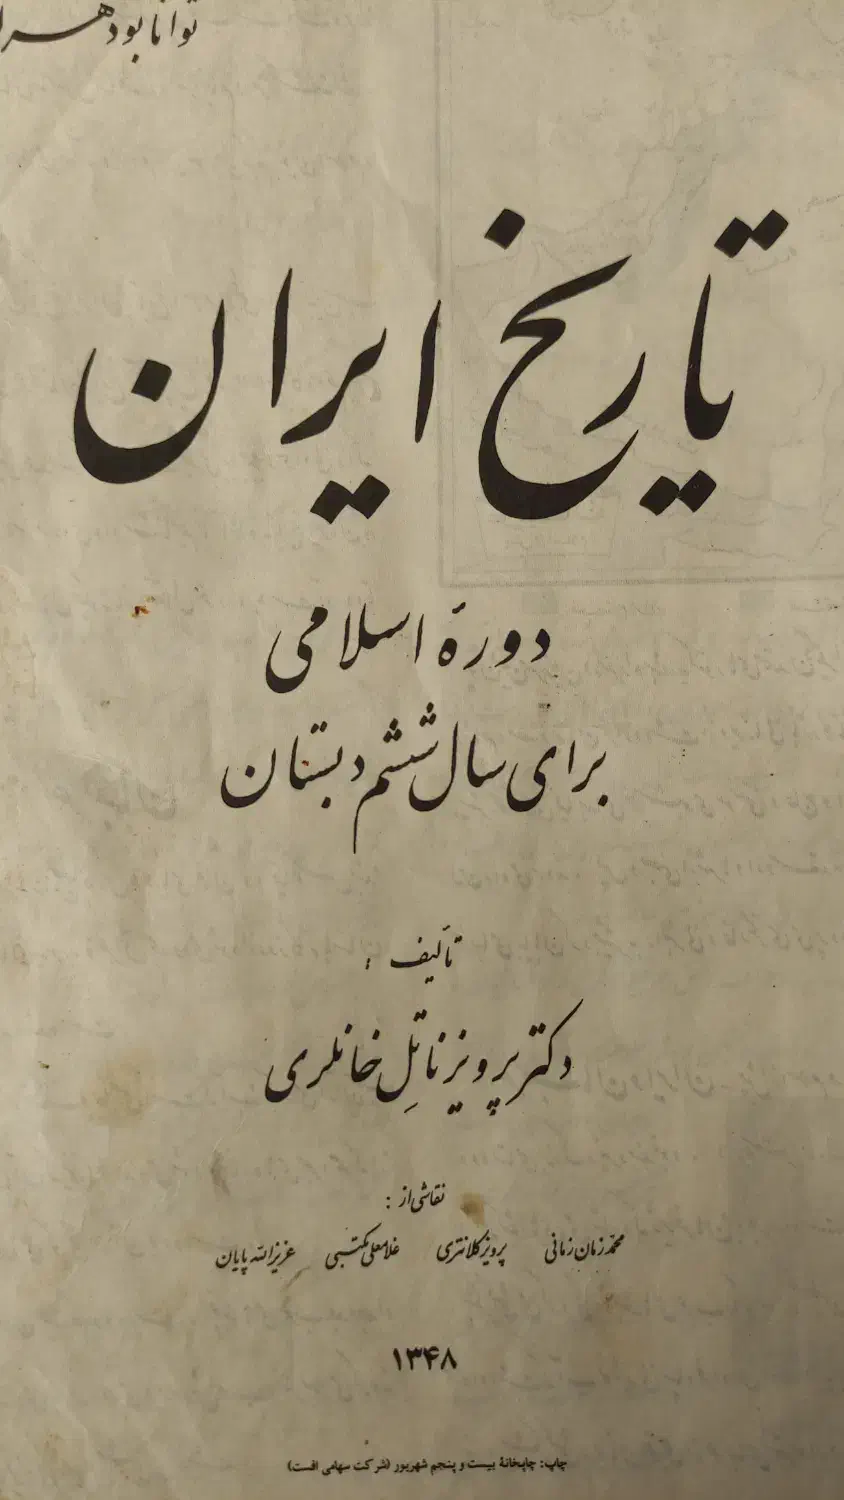 توانا بود هر
تاریخ ایران
دورهٔ اسلامی
برای سال ششم دبستان
تألیف :
دکتر پرویز ناتلِ خانلری
نقاشی از :
محمّد زمان زمانی پرویز کلانتری غلامعلی مکتبی عزیزالله پایان
۱۳۴۸
چاپ: چاپخانهٔ بیست و پنجم شهریور (شرکت سهامی افست)